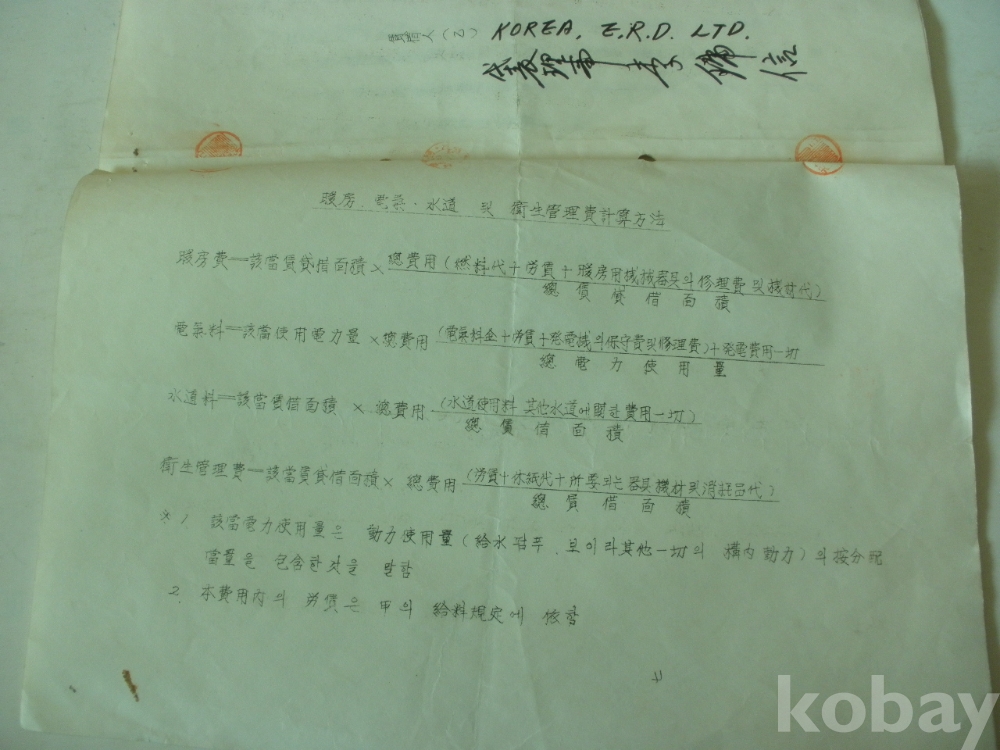 賃借人(乙) KOREA, E.R.D. LTD.
暖房, 電氣·水道 및 衛生管理費計算方法
暖房費=該當賃貸借面積× 總費用(燃料代+労賃+暖房用機械器具의修理費 및機材代)
總賃貸借面積
電氣料=該當使用電力量 ×總費用 (電氣料金+労賃+發電機의保守費및修理費)+発電費用一切
總電力使用量
水道料=該當賃借面積 × 總費用 (水道使用料 其他水道에関한費用一切)
總賃借面積
衛生管理費=該當賃貸借面積× 總費用 (労賃+休紙代+所要되는器具機材및消耗品代)
總賃借面積
※ 1 該當電力使用量은 動力使用量(給水펌푸, 보이라其他一切의 構內動力)의按分配
當量을 包含한것을 말함
2. 本費用內의 労賃은 甲의 給料規定에 依함
七
kobay